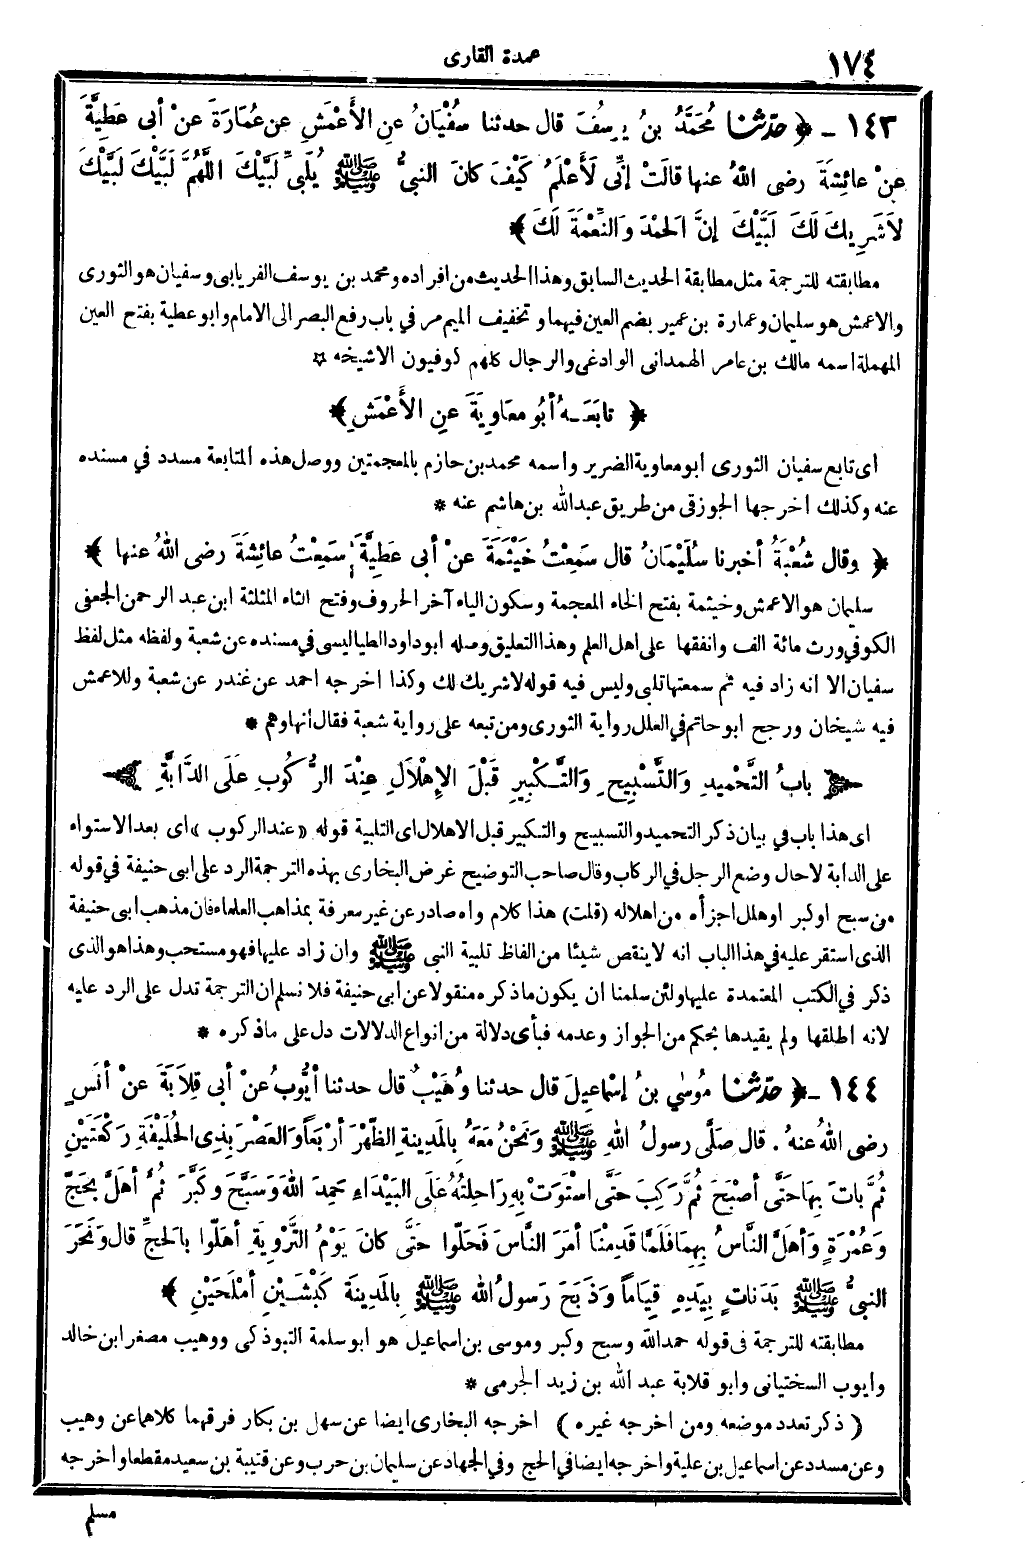 ١٧٤
عمدة القارى
١٤٣ - ﴿ حدثنا مُحَمَّدُ بنُ يوسُفَ قال حدثنا سُفْيَانُ عنِ الأعْمَشِ عن عُمَارَةَ عنْ أبى عَطِيَّةَ
عنْ عائِشَةَ رضى اللهُ عنها قالَتْ إنِّى لَأعْلَمُ كَيْفَ كانَ النبىُّ ﷺ يُلَبِّى لَبَّيْكَ اللَّهُمَّ لَبَّيْكَ لَبَّيْكَ
لاَ شَرِيكَ لَكَ لَبَّيْكَ إنَّ الحَمْدَ وَالنِّعْمَةَ لَكَ ﴾
مطابقته للترجمة مثل مطابقة الحديث السابق وهذا الحديث من افراده ومحمد بن يوسف الفريابى وسفيان هو الثورى
والاعمش هو سليمان وعمارة بن عمير بضم العين فيهما وتخفيف الميم مر في باب رفع البصر الى الامام وابو عطية بفتح العين
المهملة اسمه مالك بن عامر الهمدانى الوادعى والرجال كلهم كوفيون الا شيخه ☆
﴿ تابَعَـهُ أبُو معَاوِيَةَ عنِ الأعْمَشِ ﴾
اى تابع سفيان الثورى ابو معاوية الضرير واسمه محمد بن خازم بالمعجمتين ووصل هذه المتابعة مسدد في مسنده
عنه وكذلك اخرجها الجوزقى من طريق عبد الله بن هاشم عنه *
﴿ وقال شُعْبَةُ أخبرنا سُلَيْمَانُ قال سَمِعْتُ خَيْثَمَةَ عنْ أبى عَطِيَّةَ سَمِعْتُ عائِشَةَ رضى اللهُ عنها ﴾
سليمان هو الاعمش وخيثمة بفتح الخاء المعجمة وسكون الياء آخر الحروف وفتح الثاء المثلثة ابن عبد الرحمن الجعفى
الكوفي ورث مائة الف وانفقها على اهل العلم وهذا التعليق وصله ابو داود الطيالسى في مسنده عن شعبة ولفظه مثل لفظ
سفيان الا انه زاد فيه ثم سمعتها تلبى وليس فيه قوله لا شريك لك وكذا اخرجه احمد عن غندر عن شعبة وللاعمش
فيه شيخان ورجح ابو حاتم في العلل رواية الثورى ومن تبعه على رواية شعبة فقال انها وهم *
بابُ التَّحْمِيدِ وَالتَّسْبِيحِ وَالتَّكْبِيرِ قَبْلَ الإِهْلاَلِ عِنْدَ الرُّكُوبِ عَلَى الدَّابَّةِ
اى هذا باب في بيان ذكر التحميد والتسبيح والتكبير قبل الاهلال اى التلبية قوله «عند الركوب» اى بعد الاستواء
على الدابة لا حال وضع الرجل في الركاب وقال صاحب التوضيح غرض البخارى بهذه الترجمة الرد على ابى حنيفة في قوله
من سبح او كبر او هلل اجزأه من اهلاله (قلت) هذا كلام واه صادر عن غير معرفة بمذاهب العلماء فان مذهب ابى حنيفة
الذى استقر عليه في هذا الباب انه لا ينقص شيئا من الفاظ تلبية النبى ﷺ وان زاد عليها فهو مستحب وهذا هو الذى
ذكر في الكتب المعتمدة عليها ولئن سلمنا ان يكون ما ذكره منقولا عن ابى حنيفة فلا نسلم ان الترجمة تدل على الرد عليه
لانه اطلقها ولم يقيدها بحكم من الجواز وعدمه فبأى دلالة من انواع الدلالات دل على ما ذكره *
١٤٤ - ﴿ حدثنا مُوسَى بنُ إسْماعِيلَ قال حدثنا وُهَيْبٌ قال حدثنا أيُّوبُ عنْ أبى قِلاَبَةَ عنْ أنَسٍ
رضى اللهُ عنهُ . قال صَلَّى رسولُ اللهِ ﷺ وَنَحْنُ مَعَهُ بِالمَدِينةِ الظّهْرَ أرْبَعاً وَالعَصْرَ بِذِى الحُلَيْفَةِ رَكْعَتَيْنِ
ثُمَّ باتَ بِهَا حَتَّى أصْبَحَ ثُمَّ رَكِبَ حَتَّى اسْتَوَتْ بِهِ رَاحِلتُهُ عَلَى البَيْدَاءِ حَمِدَ اللهَ وَسَبَّحَ وَكَبَّرَ ثُمَّ أهَلَّ بِحَجّ
وَعُمْرَةٍ وَأهَلَّ النَّاسُ بِهِمَا فَلَمَّا قَدِمْنَا أمَرَ النَّاسَ فَحَلّوا حَتَّى كانَ يَوْمُ التَّرْوِيَةِ أهَلّوا بالحَجِّ قال وَنَحَرَ
النبىُّ ﷺ بَدَنَاتٍ بِيَدِهِ قِيَاماً وَذَبَحَ رَسولُ اللهِ ﷺ بِالمَدِينَةِ كَبْشَيْنِ أمْلَحَيْنِ ﴾
مطابقته للترجمة فى قوله حمد الله وسبح وكبر وموسى بن اسماعيل هو ابو سلمة التبوذكى ووهيب مصغر ابن خالد
وايوب السختيانى وابو قلابة عبد الله بن زيد الجرمى *
( ذكر تعدد موضعه ومن اخرجه غيره ) اخرجه البخارى ايضا عن سهل بن بكار فرقهما كلاهما عن وهيب
وعن مسدد عن اسماعيل بن علية واخرجه ايضا في الحج وفي الجهاد عن سليمان بن حرب وعن قتيبة بن سعيد مقطعا واخرجه
مسلم